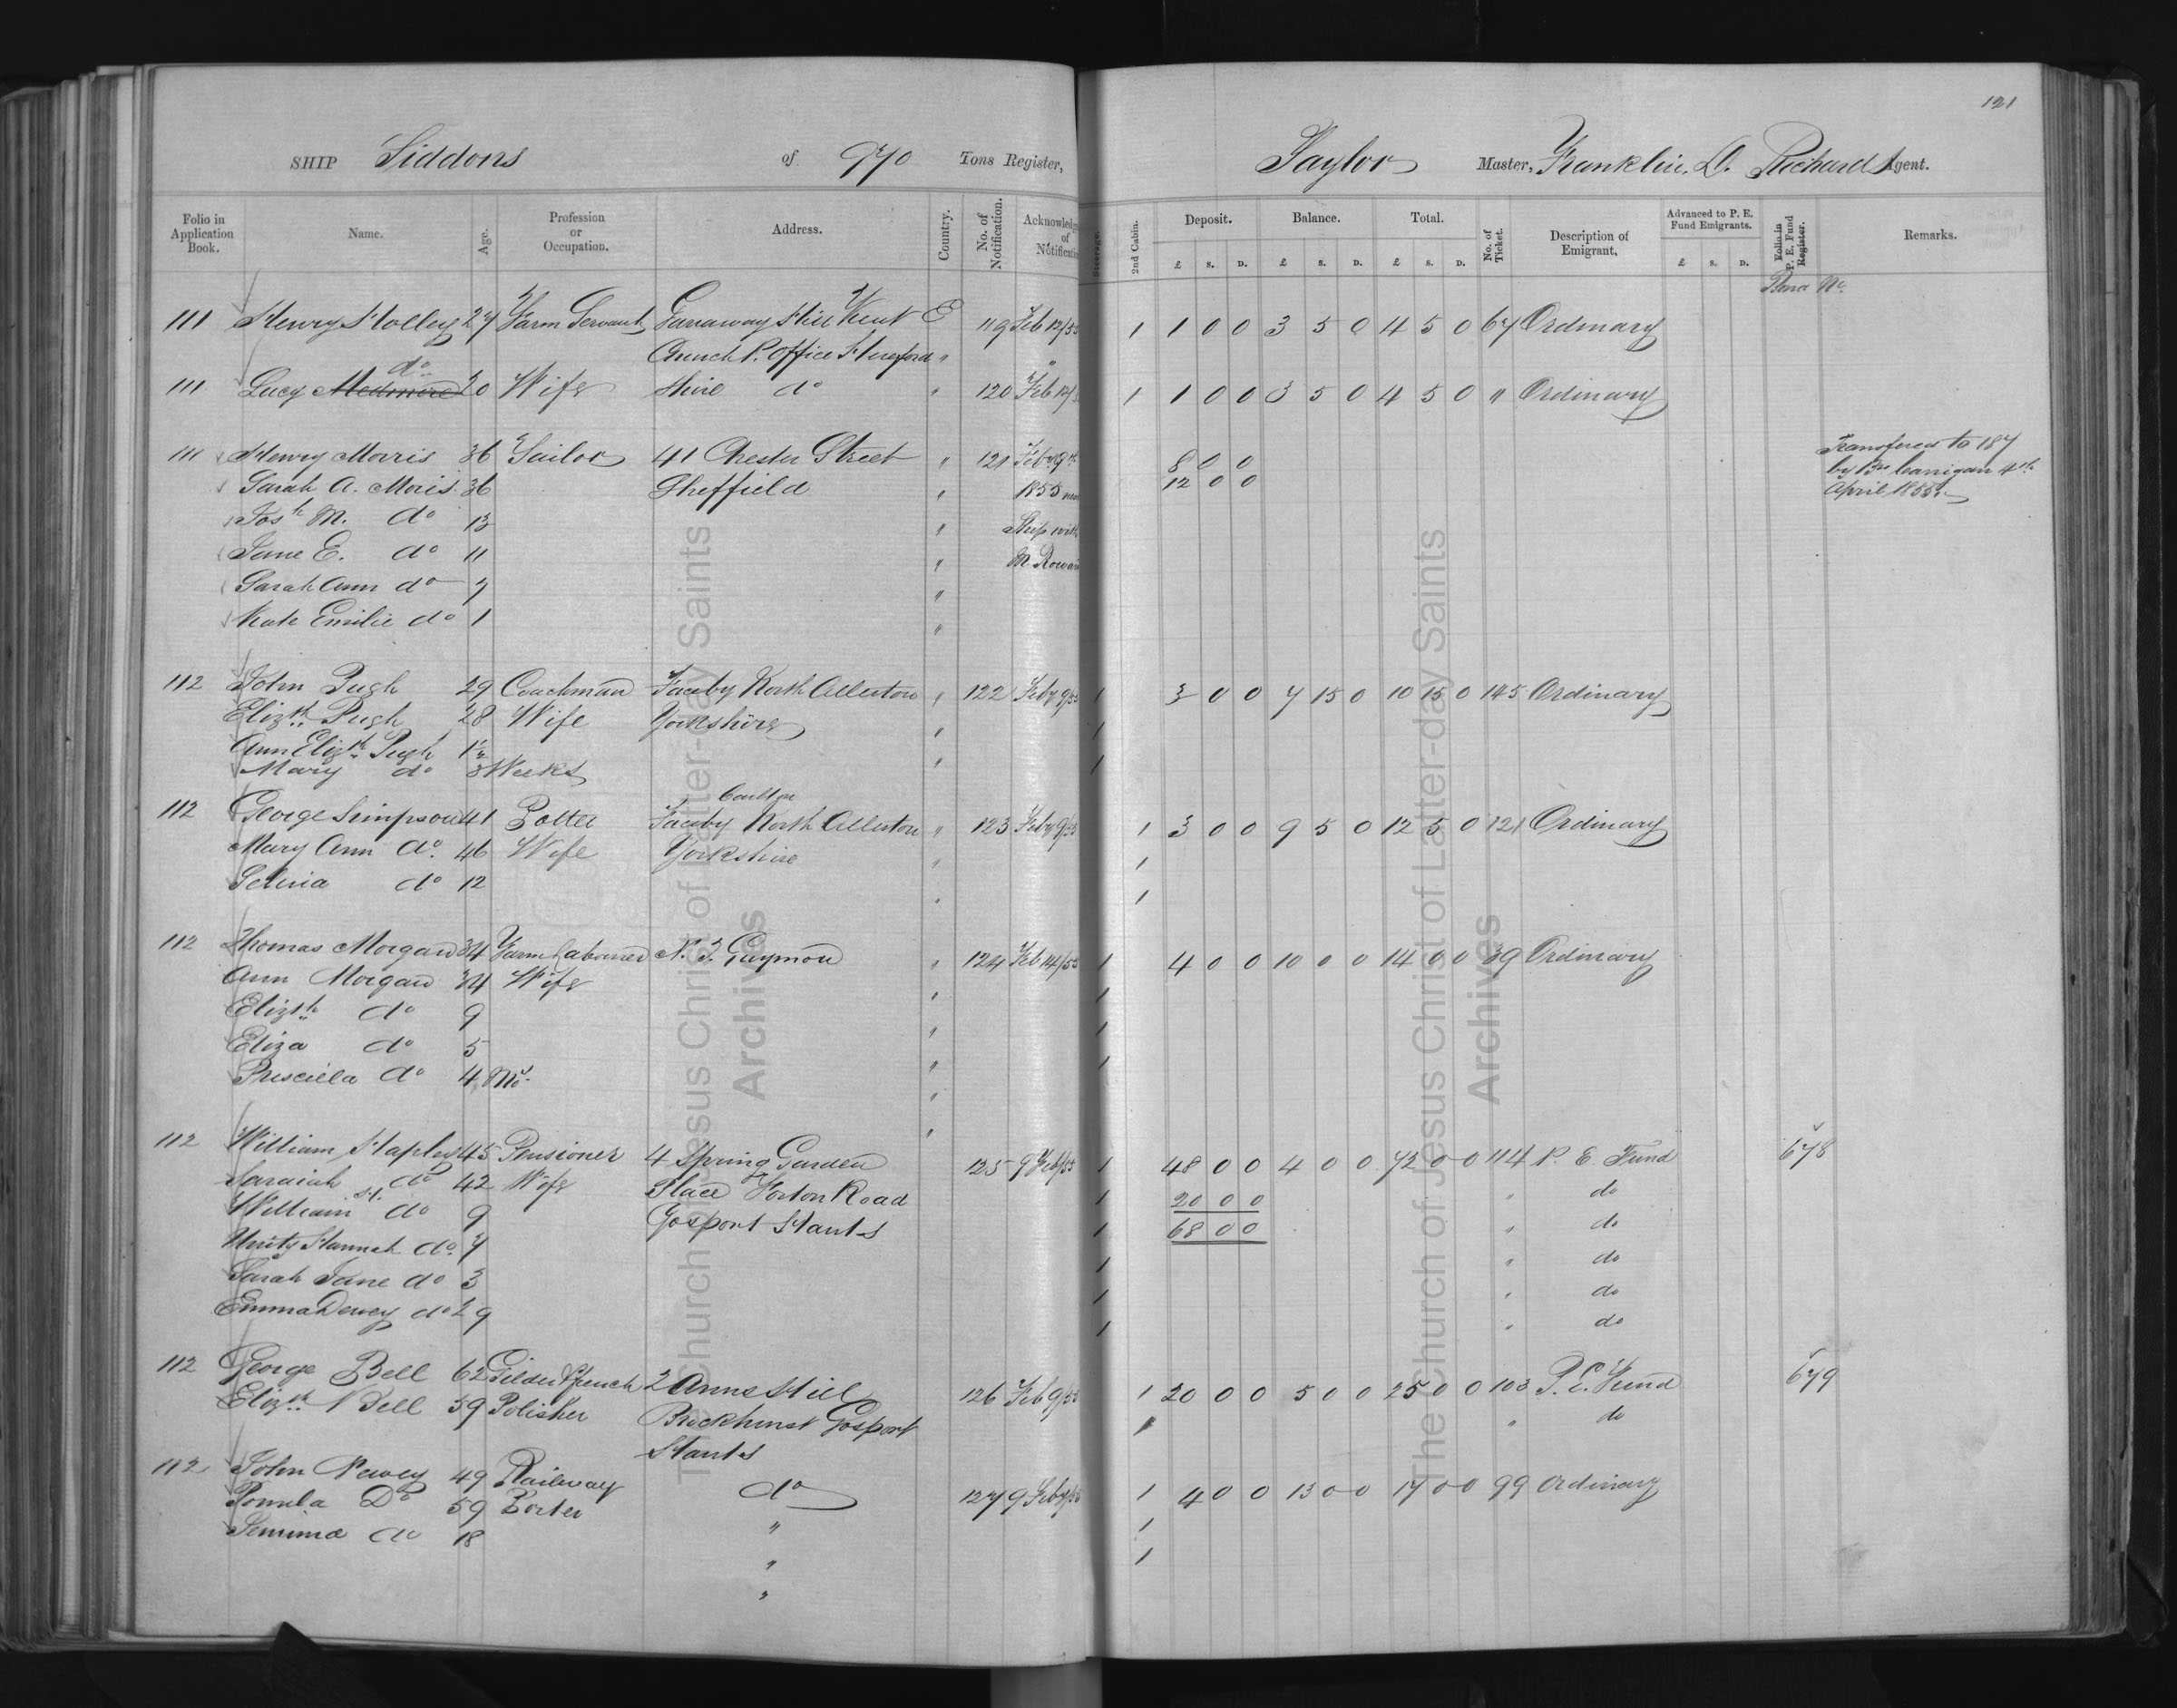 121
SHIP Siddons of 970 Tons Register, Taylor Master, Franklin. D. Richards Agent.
Folio in Application Book. Name. Age. Profession or Occupation. Address. Country. No. of Notification. Acknowledg of Notification Steerage. 2nd Cabin. Deposit. Balance. Total. No. of Ticket. Description of Emigrant. Advanced to P. E. Fund Emigrants. Folio in P. E. Fund Register. Remarks.
£ S. D. £ S. D. £ S. D. £ S. D.
Bond No.
111 Henry Holley 27 Farm Servant Garraway Hill Kent E 119 Feb 12/55 1 1 0 0 3 5 0 4 5 0 67 Ordinary
Church P. Office Hereford " "
do
111 Lucy 20 Wife Shire do " 120 Feb 12/ 1 1 0 0 3 5 0 4 5 0 " Ordinary
111 Henry Morris 36 Sailor 41 Chester Street " 121 Feby 9th 8 0 0 Transfered to 187
Sarah A. Moris 36 Sheffield " 1855 12 0 0 by Bro 4th
April 1855
Josh M. do 13 " Ship with
Jane E. do 11 " M. Rowan
Sarah Ann do 7 "
Kate Emilie do 1 "
112 John Pugh 29 Coachman Faceby North Allerton " 122 Feby 9/55 1 3 0 0 7 15 0 10 15 0 145 Ordinary
Elizth Pugh 28 Wife Yorkshire " 1
Ann Elizth Pugh " 1
Mary do 3 Weeks
Carlton
112 George Simpson 41 Potter Faceby North Allerton " 123 Feby 9/55 1 3 0 0 9 5 0 12 5 0 121 Ordinary
Mary Ann do. 46 Wife Yorkshire " 1
Selina do 12 " 1
112 Thomas Morgan 34 Farm Labourer N. T. Guymon " 124 Feb 14/55 1 4 0 0 10 0 0 14 0 0 39 Ordinary
Ann Morgan 34 Wife " 1
Elizth do 9 " 1
Eliza do 5 " 1
Prisciela do 4 Mo. "
112 William Staples 45 Pensioner 4 Spring Garden " 125 9 Feb/55 1 48 0 0 4 0 0 72 0 0 114 P. E. Fund 678
Saraiah do 42 Wife Place Forton Road 1 20 0 0 " do
William H. do 9 Gosport Hants 1 68 0 0 " do
Unity Hannah do. 7 1 " do
Sarah Jane do 3 1 " do
Emma Dewey do 29 1 " do
112 George Bell 62 Gilder & french 2 Anns Hill 126 Feb 9/55 1 20 0 0 5 0 0 25 0 0 103 P. E. Fund 679
Elizth Bell 59 Polisher Brockhurst Gosport 1 " do
Hants
112 John Newey 49 Railway do 127 9 Feby/55 1 4 0 0 13 0 0 17 0 0 99 Ordinary
Pomela Do 59 Porter " 1
Jemima do 18 " 1
"
The Church of Jesus Christ of Latter-day Saints
Archives
The Church of Jesus Christ of Latter-day Saints
Archives